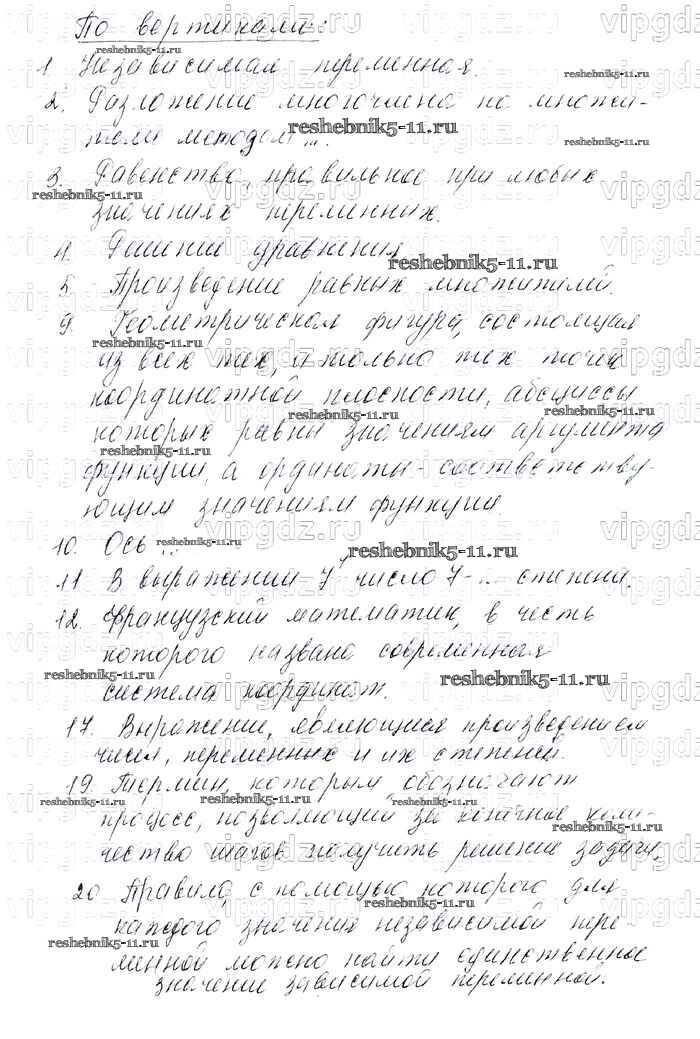 По вертикали:
1. Независимая переменная.
2. Разложение многочлена на множи-
тели методом ...
3. Равенство, правильное при любых
значениях переменных.
4. Решение уравнения.
5. Произведение равных множителей.
9. Геометрическая фигура, состоящая
из всех тех, и только тех точек
координатной плоскости, абсциссы
которых равны значениям аргумента
функции, а ординаты - соответству-
ющим значениям функции.
10. Ось ...
11 В выражении 7 число 7- ... степени.
12. Французский математик, в честь
которого названа современная
система координат.
17. Выражение, являющиеся произведением
чисел, переменных и их степеней.
19. Термин, которым обозначают
процесс, позволяющий за конечное коли-
чество шагов получить решение задачи.
20 Правило, с помощью которого для
каждого значения независимой пере-
менной можно найти единственное
значение зависимой переменной.
reshebnik5-11.ru
vipgdz.ru